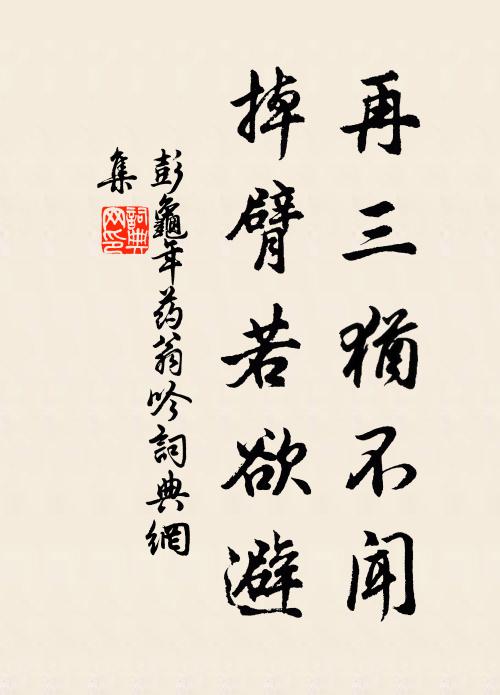 再三猶不聞
掉臂若欲避
彭龜年药翁吟詞典網
集
詞典
网印